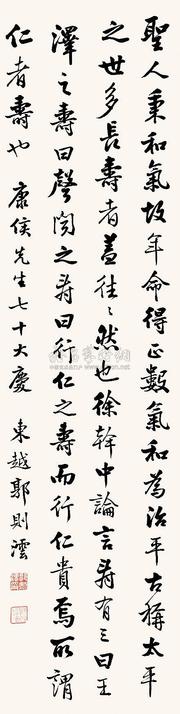 聖人秉和氣故年命得正數氣和為治平古稱太平
之世多長壽者蓋往往然也徐幹中論言壽有三曰王
澤之壽曰聲聞之壽曰行仁之壽而行仁貴焉所謂
仁者壽也　康侯先生七十大慶　東越郭則澐